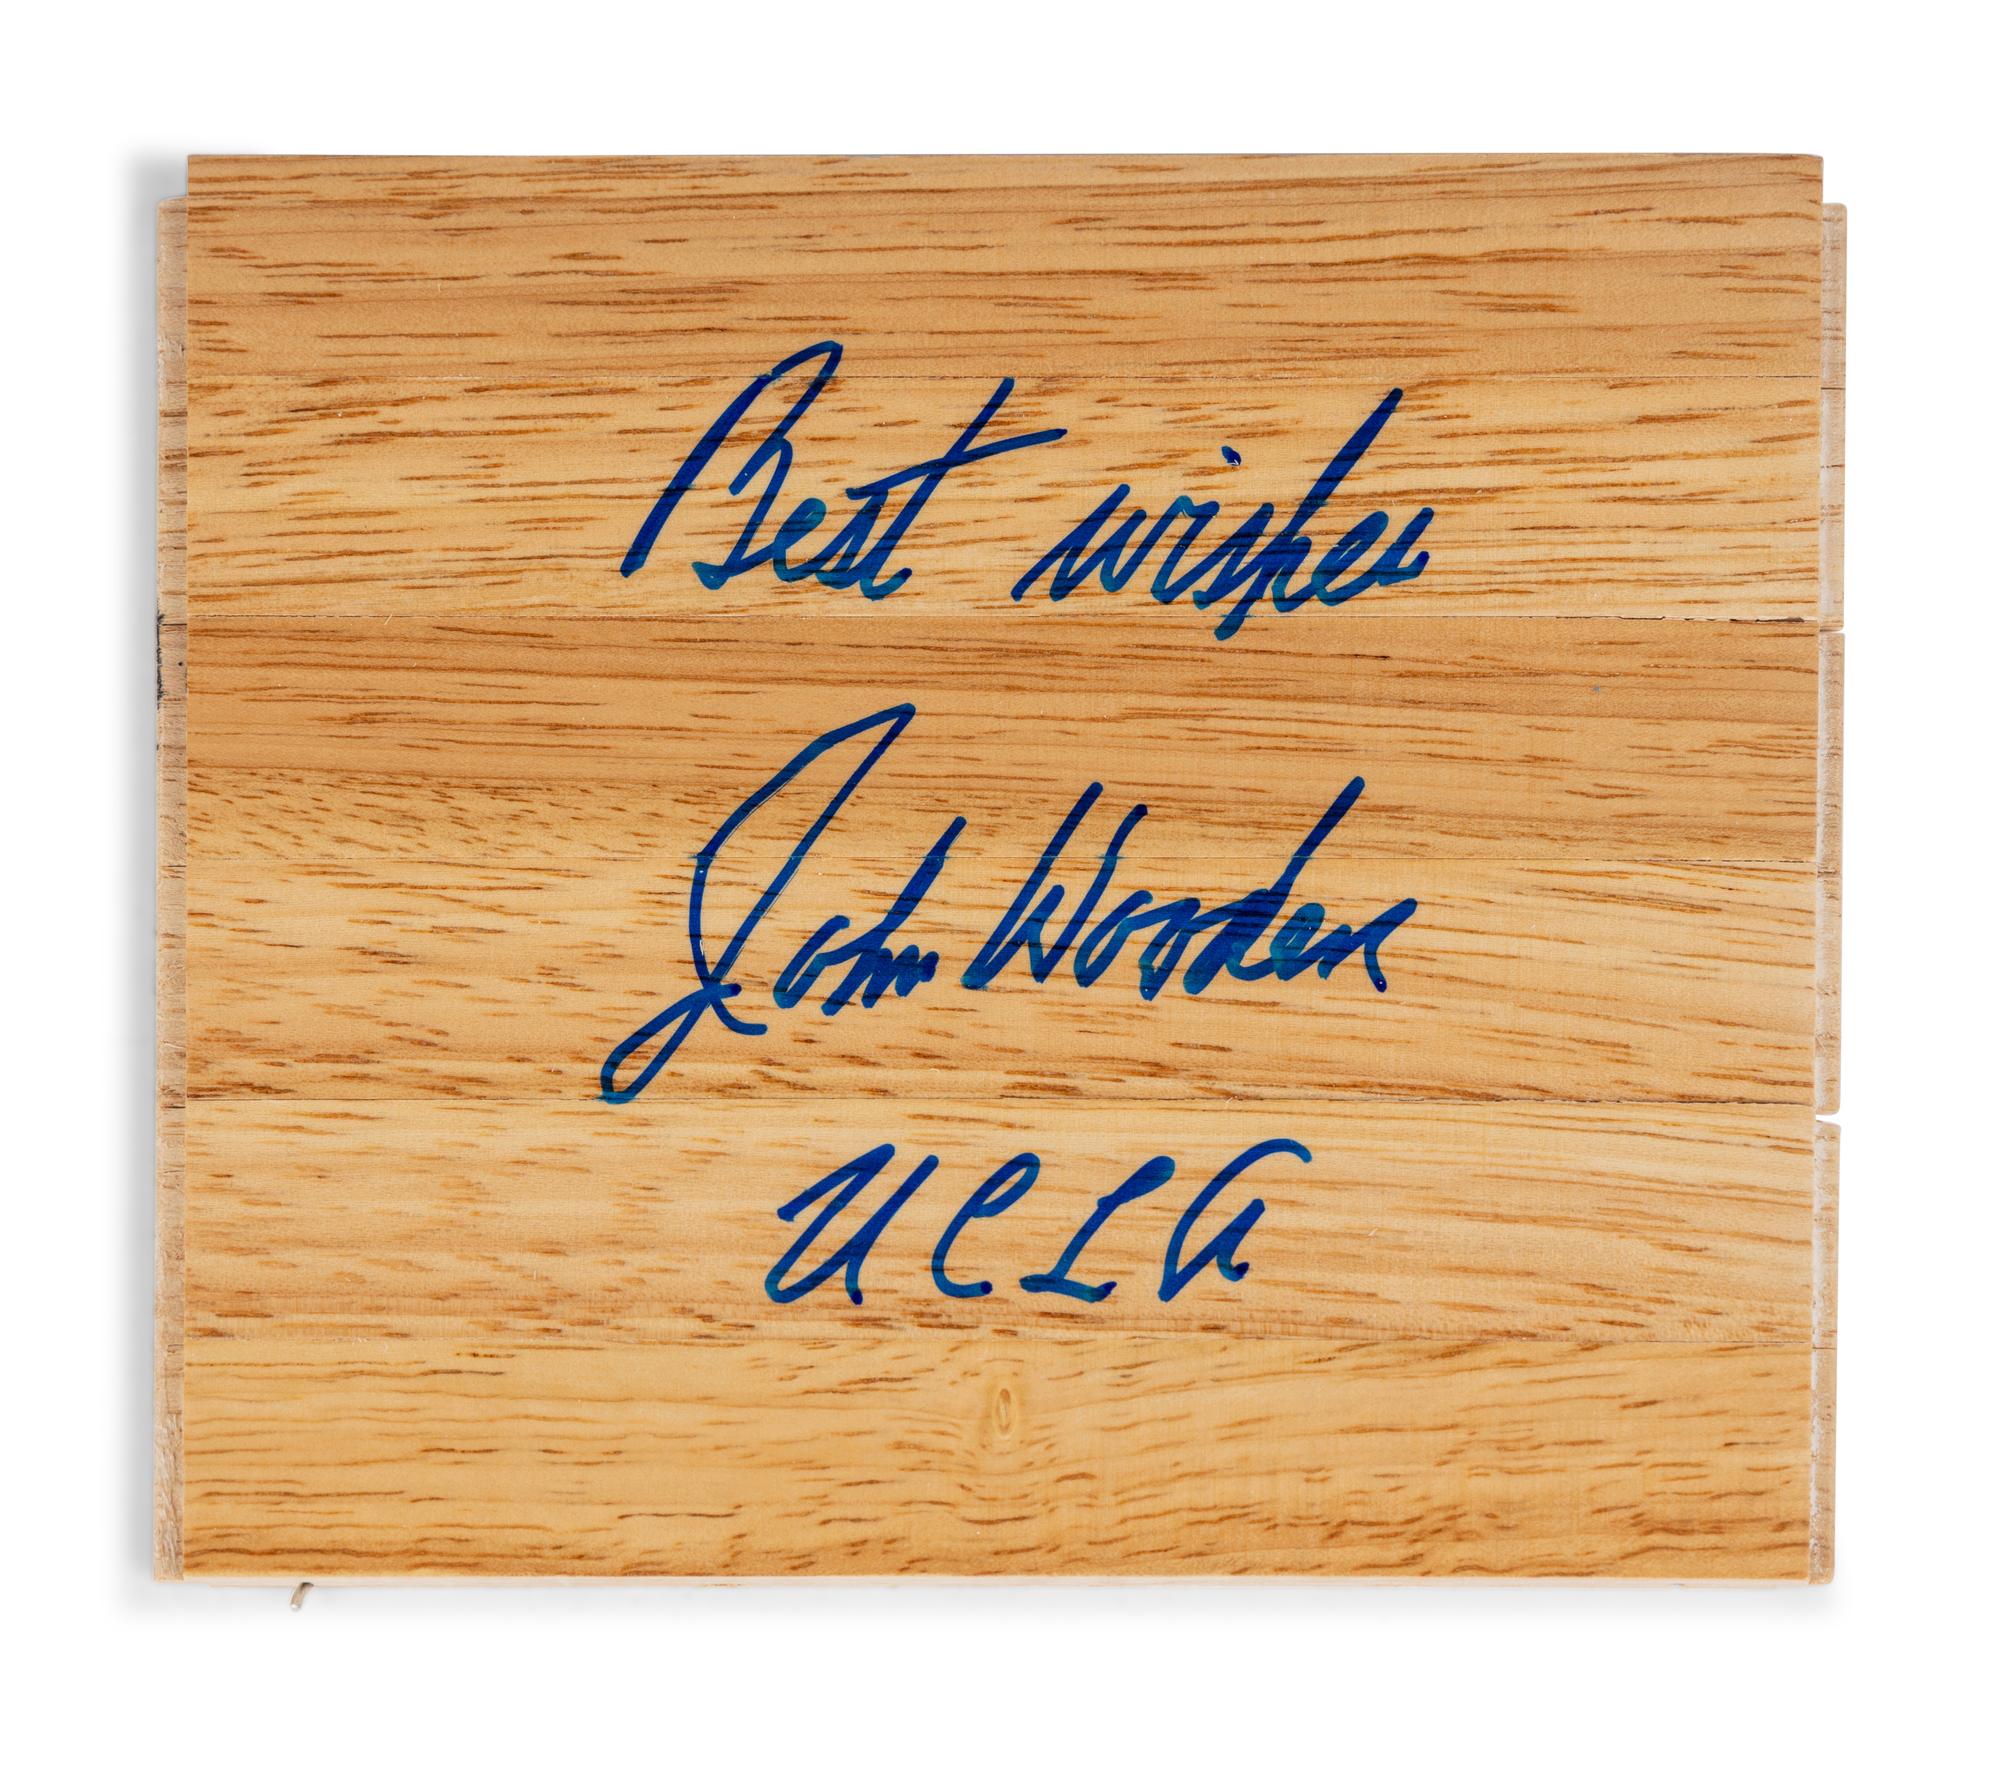 Best wishes
John Wooden
UCLA